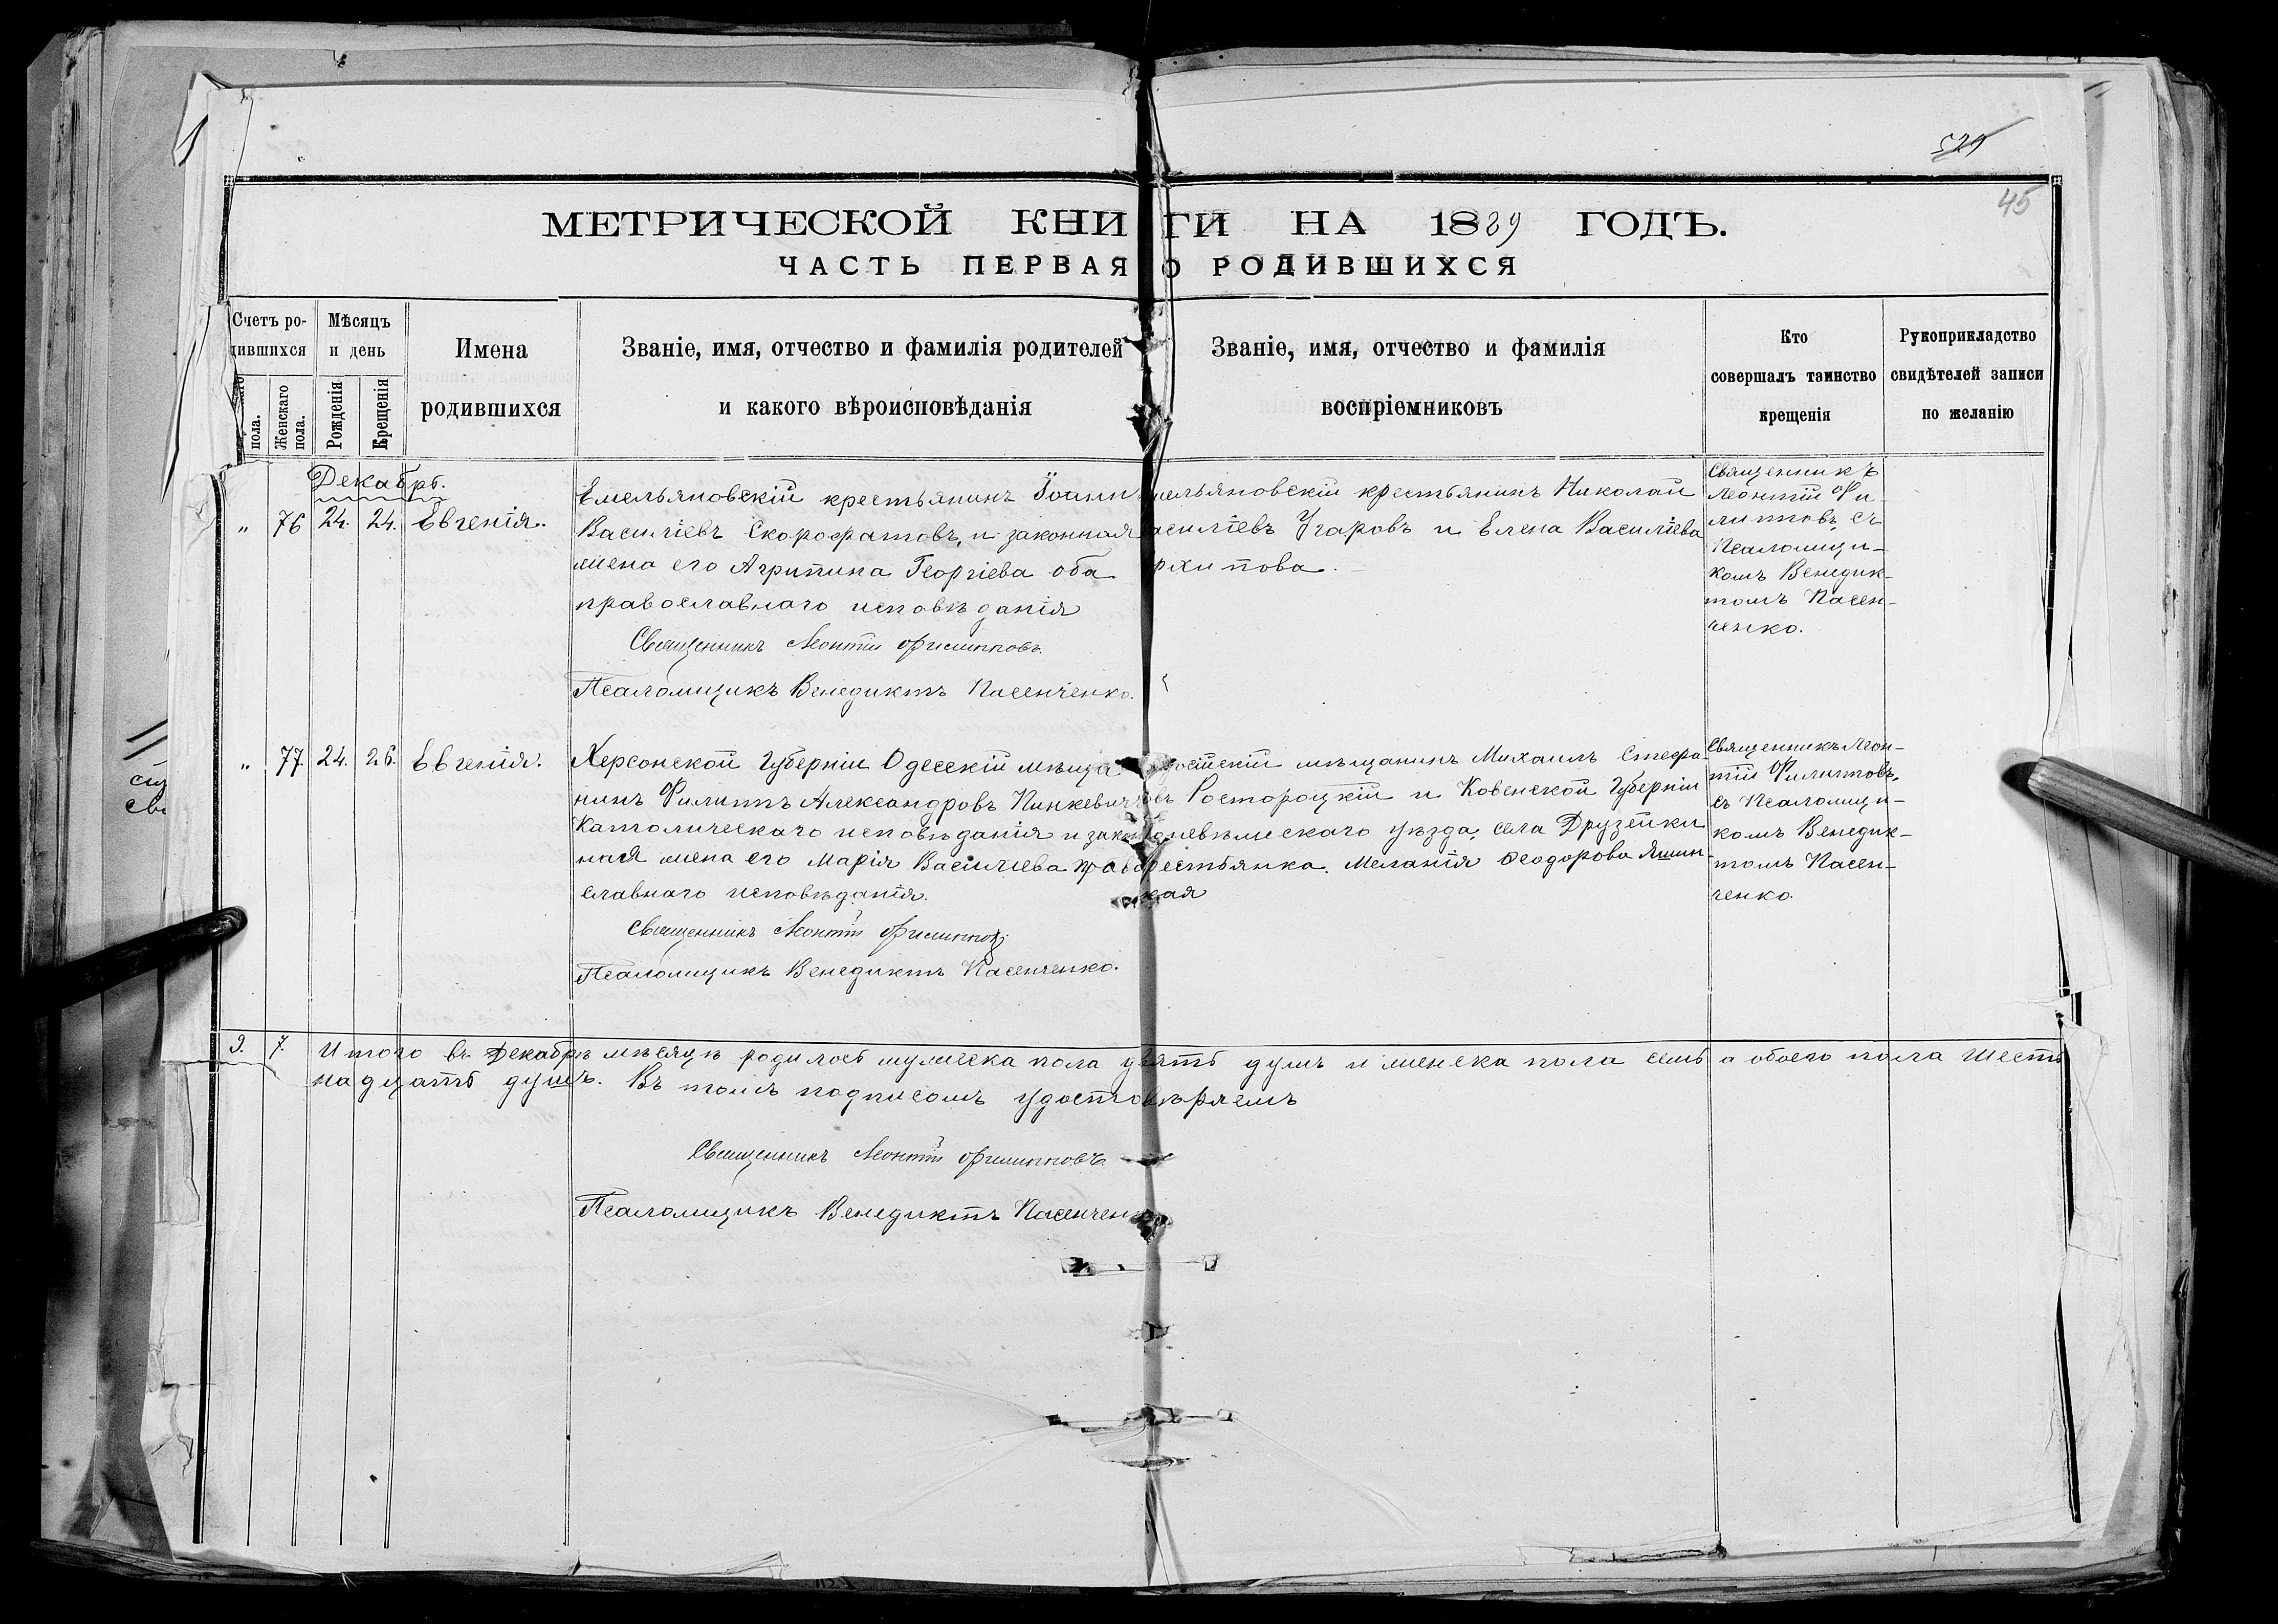 525
45
МЕТРИЧЕСКОЙ КНИГИ НА 1889 ГОДЪ.
ЧАСТЬ ПЕРВАЯ О РОДИВШИХСЯ
Счетъ ро-
дившихся
пола.
Женскаго пола.
Мѣсяцъ
и день
Рожденія
Крещенія
Имена
родившихся
Званіе, имя, отчество и фамилія родителей
и какого вѣроисповѣданія
Званіе, имя, отчество и фамилія
воспріемниковъ
Кто
совершалъ таинство
крещенія
Рукоприкладство
свидѣтелей записи
по желанію
Декабрь.
" 76 24. 24. Евгенія.
Емельяновскій крестьянинъ Іоанн
Василіевъ Скорофатовъ, и законная
жена его Агрипина Георгіева оба
православнаго исповѣданія
Священникъ Леонтій Филипповъ.
Псаломщикъ Венедиктъ Пасенченко.
мельяновскій крестьянинъ Николай
асиліевъ Угаровъ и Елена Василіева
рхипова.
Священникъ
Леонтій Фи-
липповъ, съ
Псаломщи-
комъ Венедик-
томъ Пасен-
ченко.
" 77. 24. 26. Евгенія.
Херсонской Губерніи Одесскій мѣща
нинъ Филиппъ Александровъ Пинкевичъ
Католическаго исповѣданія и закон
ная жена его Марія Василіева право
славнаго исповѣданія.
Священникъ Леонтій Филипповъ
Псаломщикъ Венедиктъ Пасенченко.
мѣщанинъ Михаилъ Стефа-
овъ Ростороцкій и Ковенской Губерніи
уѣзда, села Друзейки
рестьянка. Меланія Ѳеодорова Яшин-
кая
Священникъ Леон-
тій Филипповъ,
съ Псаломщи-
комъ Венедик-
томъ Пасен-
ченко.
9. 7. Итого въ Декабрѣ мѣсяцѣ родилось мужеска пола девять душъ и женска пола семь а обоего пола шесть
надцать душъ. Въ томъ подписомъ удостовѣряемъ
Священникъ Леонтій Филипповъ.
Псаломщикъ Венедиктъ Пасенченко